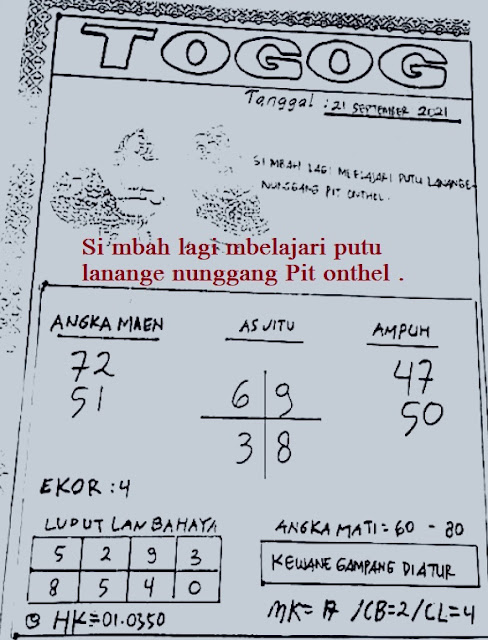 TOGOG
Tanggal : 21 SEPTEMBER 2021
SI MBAH LAGI MBELAJARI PUTU LANANGE
NUNGGANG PIT ONTHEL .
Si mbah lagi mbelajari putu
lanange nunggang Pit onthel .
ANGKA MAEN
72
51
AS JITU
6 9
3 8
AMPUH
47
50
EKOR : 4
LUPUT LAN BAHAYA
5 2 9 3
8 5 4 0
HK = 01.0350
ANGKA MATI = 60 - 80
KEWANE GAMPANG DIATUR
MK = 17 / CB = 2 / CL = 4